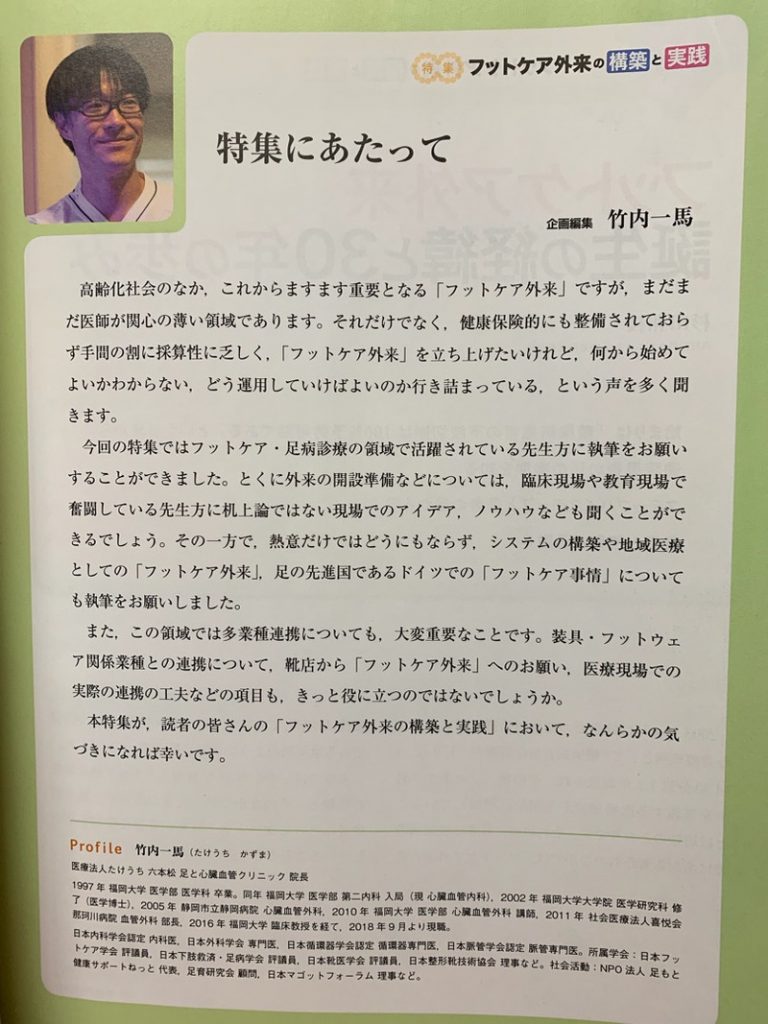 特集 フットケア外来の構築と実践
特集にあたって
企画編集 竹内一馬
高齢化社会のなか，これからますます重要となる「フットケア外来」ですが，まだま
だ医師が関心の薄い領域であります。それだけでなく，健康保険的にも整備されておら
ず手間の割に採算性に乏しく，「フットケア外来」を立ち上げたいけれど，何から始めて
よいかわからない，どう運用していけばよいのか行き詰まっている，という声を多く聞
きます。
今回の特集ではフットケア・足病診療の領域で活躍されている先生方に執筆をお願い
することができました。とくに外来の開設準備などについては，臨床現場や教育現場で
奮闘している先生方に机上論ではない現場でのアイデア，ノウハウなども聞くことがで
きるでしょう。その一方で，熱意だけではどうにもならず，システムの構築や地域医療
としての「フットケア外来」，足の先進国であるドイツでの「フットケア事情」について
も執筆をお願いしました。
また，この領域では多業種連携についても，大変重要なことです。装具・フットウェ
ア関係業種との連携について，靴店から「フットケア外来」へのお願い，医療現場での
実際の連携の工夫などの項目も，きっと役に立つのではないでしょうか。
本特集が，読者の皆さんの「フットケア外来の構築と実践」において，なんらかの気
づきになれば幸いです。
Profile 竹内一馬（たけうち かずま）
医療法人たけうち 六本松 足と心臓血管クリニック 院長
1997 年 福岡大学 医学部 医学科 卒業。同年 福岡大学 医学部 第二内科 入局（現 心臓血管内科），2002 年 福岡大学大学院 医学研究科 修
了（医学博士），2005 年 静岡市立静岡病院 心臓血管外科，2010 年 福岡大学 医学部 心臓血管外科 講師，2011 年 社会医療法人喜悦会
那珂川病院 血管外科 部長，2016 年 福岡大学 臨床教授を経て，2018 年 9 月より現職。
日本内科学会認定 内科医，日本外科学会 専門医，日本循環器学会認定 循環器専門医，日本脈管学会認定 脈管専門医。所属学会：日本フッ
トケア学会 評議員，日本下肢救済・足病学会 評議員，日本靴医学会 評議員，日本整形靴技術協会 理事など。社会活動：NPO 法人 足もと
健康サポートねっと 代表，足育研究会 顧問，日本マゴットフォーラム 理事など。